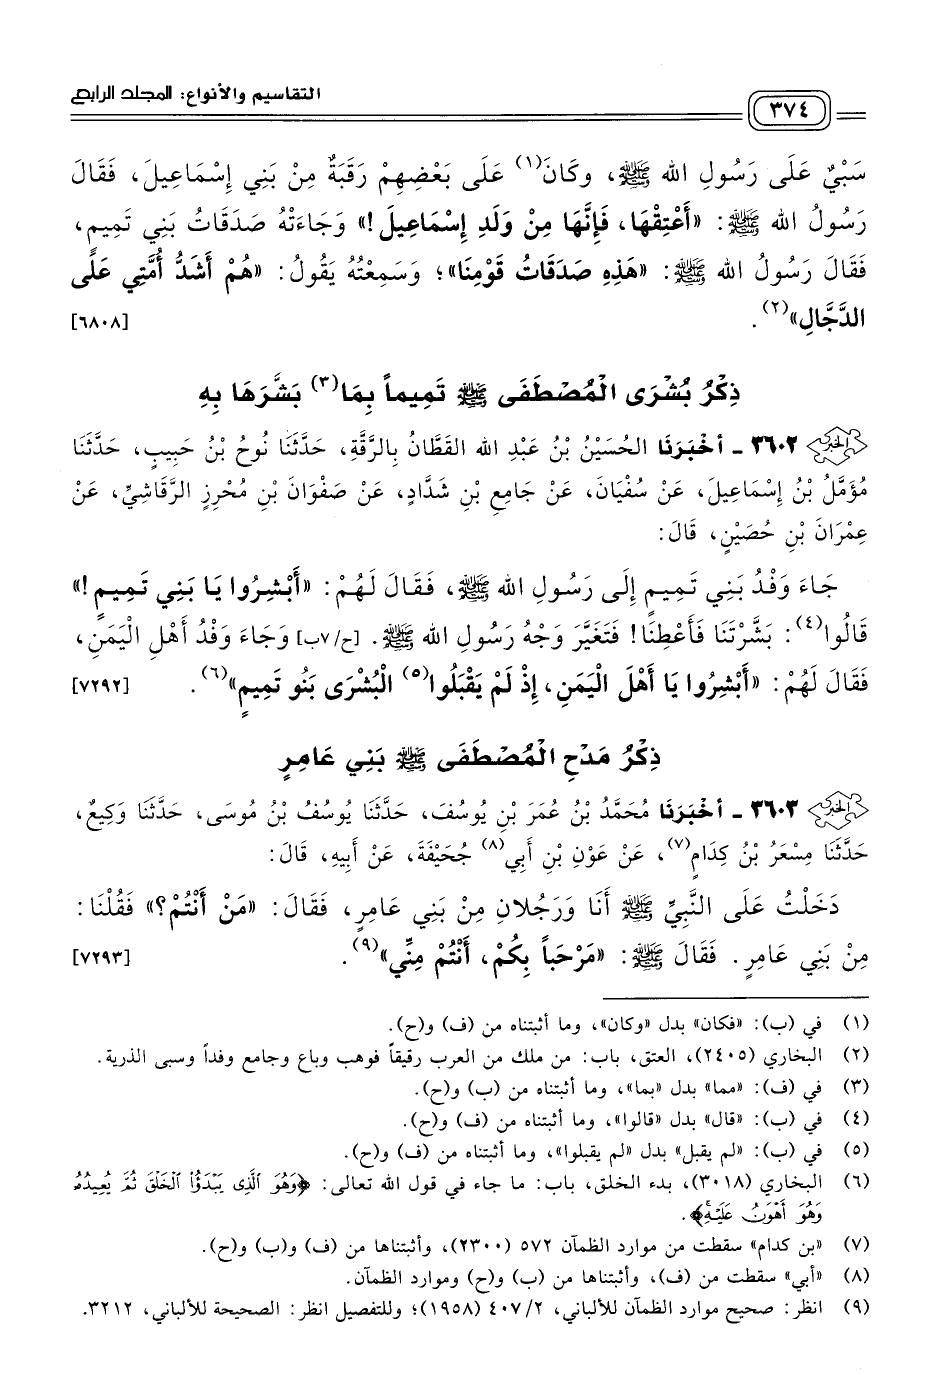 التقاسيم والأنواع: المجلد الرابع
٣٧٤
سَبْيٌ عَلَى رَسُولِ الله ﷺ، وكَانَ(١) عَلَى بَعْضِهِمْ رَقَبَةٌ مِنْ بَنِي إِسْمَاعِيلَ، فَقَالَ
رَسُولُ الله ﷺ: «أَعْتِقْهَا، فَإِنَّهَا مِنْ وَلَدِ إِسْمَاعِيلَ!» وَجَاءَتْهُ صَدَقَاتُ بَنِي تَمِيمٍ،
فَقَالَ رَسُولُ الله ﷺ: «هَذِهِ صَدَقَاتُ قَوْمِنَا»؛ وَسَمِعْتُهُ يَقُولُ: «هُمْ أَشَدُّ أُمَّتِي عَلَى
الدَّجَّالِ»(٢). [٦٨٠٨]
ذِكْرُ بُشْرَى الْمُصْطَفَى ﷺ تَمِيماً بِمَا(٣) بَشَّرَهَا بِهِ
الخبر ٣٦٠٢ - أَخْبَرَنَا الحُسَيْنُ بْنُ عَبْدِ الله القَطَّانُ بِالرَّقَّةِ، حَدَّثَنَا نُوحُ بْنُ حَبِيبٍ، حَدَّثَنَا
مُؤَمَّلُ بْنُ إِسْمَاعِيلَ، عَنْ سُفْيَانَ، عَنْ جَامِعِ بْنِ شَدَّادٍ، عَنْ صَفْوَانَ بْنِ مُحْرِزٍ الرَّقَاشِيِّ، عَنْ
عِمْرَانَ بْنِ حُصَيْنٍ، قَالَ:
جَاءَ وَفْدُ بَنِي تَمِيمٍ إِلَى رَسُولِ الله ﷺ، فَقَالَ لَهُمْ: «أَبْشِرُوا يَا بَنِي تَمِيمٍ!»
قَالُوا(٤): بَشَّرْتَنَا فَأَعْطِنَا! فَتَغَيَّرَ وَجْهُ رَسُولِ الله ﷺ. [ح/٧ب] وَجَاءَ وَفْدُ أَهْلِ الْيَمَنِ،
فَقَالَ لَهُمْ: «أَبْشِرُوا يَا أَهْلَ الْيَمَنِ، إِذْ لَمْ يَقْبَلُوا(٥) الْبُشْرَى بَنُو تَمِيمٍ»(٦). [٧٢٩٢]
ذِكْرُ مَدْحِ الْمُصْطَفَى ﷺ بَنِي عَامِرٍ
الخبر ٣٦٠٣ - أَخْبَرَنَا مُحَمَّدُ بْنُ عُمَرَ بْنِ يُوسُفَ، حَدَّثَنَا يُوسُفُ بْنُ مُوسَى، حَدَّثَنَا وَكِيعٌ،
حَدَّثَنَا مِسْعَرُ بْنُ كِدَامٍ(٧)، عَنْ عَوْنِ بْنِ أَبِي(٨) جُحَيْفَةَ، عَنْ أَبِيهِ، قَالَ:
دَخَلْتُ عَلَى النَّبِيِّ ﷺ أَنَا وَرَجُلانِ مِنْ بَنِي عَامِرٍ، فَقَالَ: «مَنْ أَنْتُمْ؟» فَقُلْنَا:
مِنْ بَنِي عَامِرٍ. فَقَالَ ﷺ: «مَرْحَباً بِكُمْ، أَنْتُمْ مِنِّي»(٩). [٧٢٩٣]
(١) في (ب): «فكان» بدل «وكان»، وما أثبتناه من (ف) و(ح).
(٢) البخاري (٢٤٠٥)، العتق، باب: من ملك من العرب رقيقاً فوهب وباع وجامع وفداً وسبى الذرية.
(٣) في (ف): «مما» بدل «بما»، وما أثبتناه من (ب) و(ح).
(٤) في (ب): «قال» بدل «قالوا»، وما أثبتناه من (ف) و(ح).
(٥) في (ب): «لم يقبل» بدل «لم يقبلوا»، وما أثبتناه من (ف) و(ح).
(٦) البخاري (٣٠١٨)، بدء الخلق، باب: ما جاء في قول الله تعالى: ﴿وَهُوَ ٱلَّذِى يَبْدَؤُا۟ ٱلْخَلْقَ ثُمَّ يُعِيدُهُۥ
وَهُوَ أَهْوَنُ عَلَيْهِ﴾.
(٧) «بن كدام» سقطت من موارد الظمآن ٥٧٢ (٢٣٠٠)، وأثبتناها من (ف) و(ب) و(ح).
(٨) «أبي» سقطت من (ف)، وأثبتناها من (ب) و(ح) وموارد الظمآن.
(٩) انظر: صحيح موارد الظمآن للألباني، ٤٠٧/٢ (١٩٥٨)؛ وللتفصيل انظر: الصحيحة للألباني، ٣٢١٢.